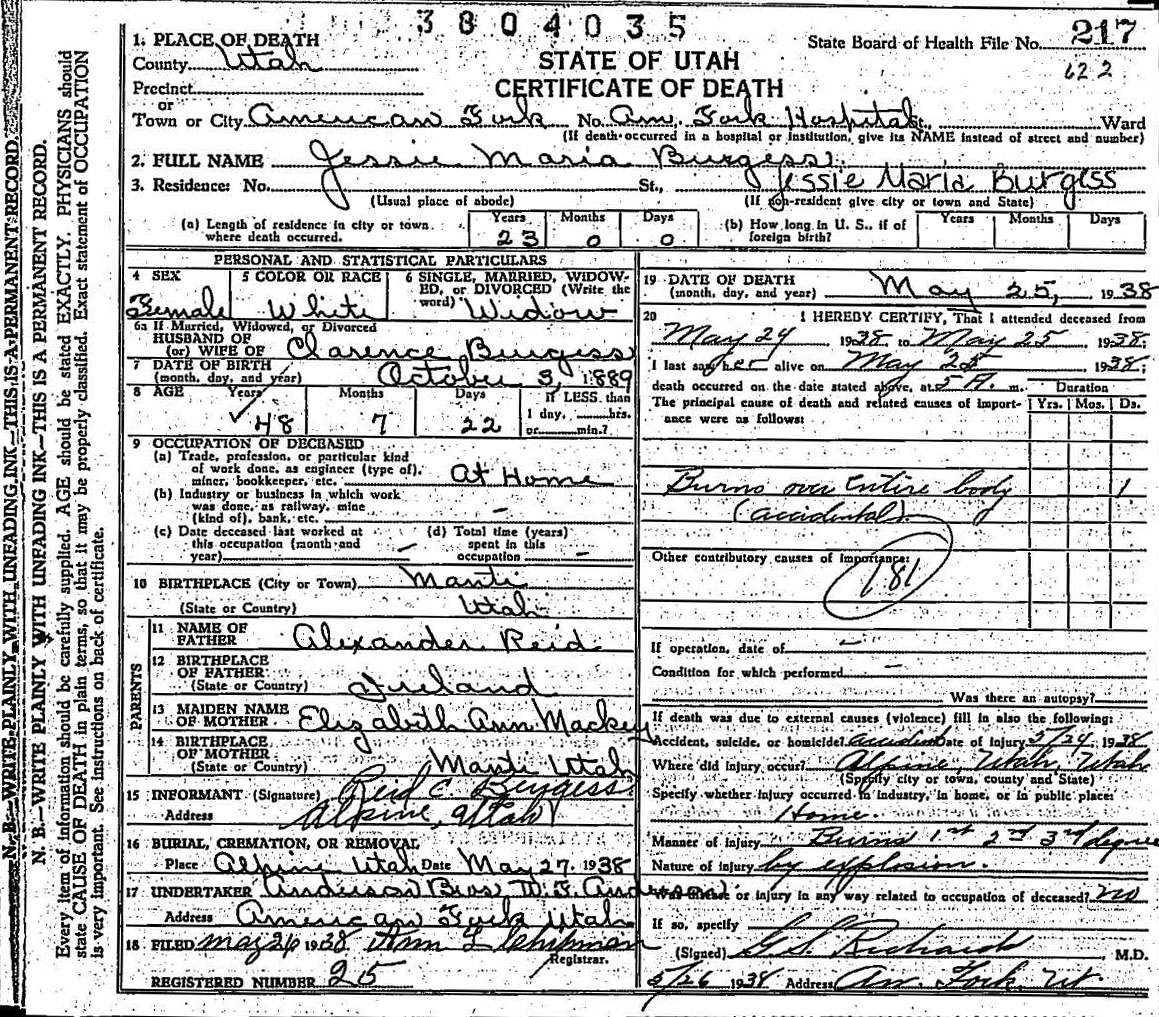 3804035
1. PLACE OF DEATH
County Utah
STATE OF UTAH
CERTIFICATE OF DEATH
State Board of Health File No. 217
622
Precinct
or
Town or City American Fork No. Am. Fork Hospital St., Ward
(If death occurred in a hospital or institution, give its NAME instead of street and number)
2. FULL NAME Jessie Maria Burgess
3. Residence: No. St., Jessie Maria Burgess
(Usual place of abode) (If non-resident give city or town and State)
(a) Length of residence in city or town where death occurred. Years 23 Months 0 Days 0
(b) How long in U. S., if of foreign birth? Years Months Days
PERSONAL AND STATISTICAL PARTICULARS
4 SEX Female
5 COLOR OR RACE White
6 SINGLE, MARRIED, WIDOWED, or DIVORCED (Write the word) Widow
6a If Married, Widowed, or Divorced
HUSBAND OF
(or) WIFE OF Clarence Burgess
7 DATE OF BIRTH
(month, day, and year) October 3, 1889
8 AGE Years 48 Months 7 Days 22
If LESS than
1 day, hrs.
or min.?
9 OCCUPATION OF DECEASED
(a) Trade, profession, or particular kind
of work done, as engineer (type of),
miner, bookkeeper, etc. At Home
(b) Industry or business in which work
was done, as railway, mine
(kind of), bank, etc. -
(c) Date deceased last worked at
this occupation (month and
year) -
(d) Total time (years)
spent in this
occupation -
10 BIRTHPLACE (City or Town) Manti
(State or Country) Utah
PARENTS
11 NAME OF
FATHER Alexander Reid
12 BIRTHPLACE
OF FATHER
(State or Country) Ireland
13 MAIDEN NAME
OF MOTHER Elizabeth Ann Mackey
14 BIRTHPLACE
OF MOTHER
(State or Country) Manti Utah
15 INFORMANT (Signature) Reid C. Burgess
Address Alpine, Utah
16 BURIAL, CREMATION, OR REMOVAL
Place Alpine Utah Date May 27, 1938
17 UNDERTAKER Anderson Bros. W. F. Anderson
Address American Fork Utah
18 FILED May 26 1938 Ann L Chipman
Registrar.
REGISTERED NUMBER 25
19 DATE OF DEATH
(month, day, and year) May 25, 1938
20 I HEREBY CERTIFY, That I attended deceased from
May 24 1938, to May 25 1938;
I last saw her alive on May 25 1938;
death occurred on the date stated above, at 5 A. m.
Duration
The principal cause of death and related causes of importance were as follows:
Yrs. Mos. Ds.
Burns over Entire body 1
(accidental)
Other contributory causes of importance:
181
If operation, date of -
Condition for which performed -
Was there an autopsy?
If death was due to external causes (violence) fill in also the following:
Accident, suicide, or homicide? accident Date of injury 5/24, 1938
Where did injury occur? Alpine, Utah, Utah
(Specify city or town, county and State)
Specify whether injury occurred in industry, in home, or in public place:
Home.
Manner of injury Burns 1st 2nd 3rd degree
Nature of injury by explosion.
Was disease or injury in any way related to occupation of deceased? no
If so, specify
(Signed) G. S. Richards M.D.
5/26 1938 Address Am. Fork, Ut
N. B.—WRITE PLAINLY WITH UNFADING INK—THIS IS A PERMANENT RECORD.
N. B.—WRITE PLAINLY WITH UNFADING INK—THIS IS A PERMANENT RECORD.
Every item of information should be carefully supplied. AGE should be stated EXACTLY. PHYSICIANS should
state CAUSE OF DEATH in plain terms, so that it may be properly classified. Exact statement of OCCUPATION
is very important. See instructions on back of certificate.